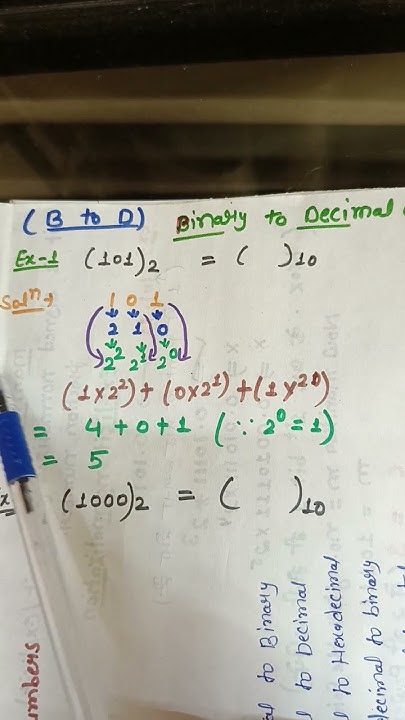 (B to D) Binary to Decimal
Ex-1 (101)₂ = ( )₁₀
Solⁿ→ 1 0 1
2 1 0
2² 2¹ 2⁰
(1×2²) + (0×2¹) + (1×2⁰)
= 4 + 0 + 1 (∵ 2⁰ = 1)
= 5
(1000)₂ = ( )₁₀
to Binary
to Decimal
to Hexadecimal
decimal to binary
umbers